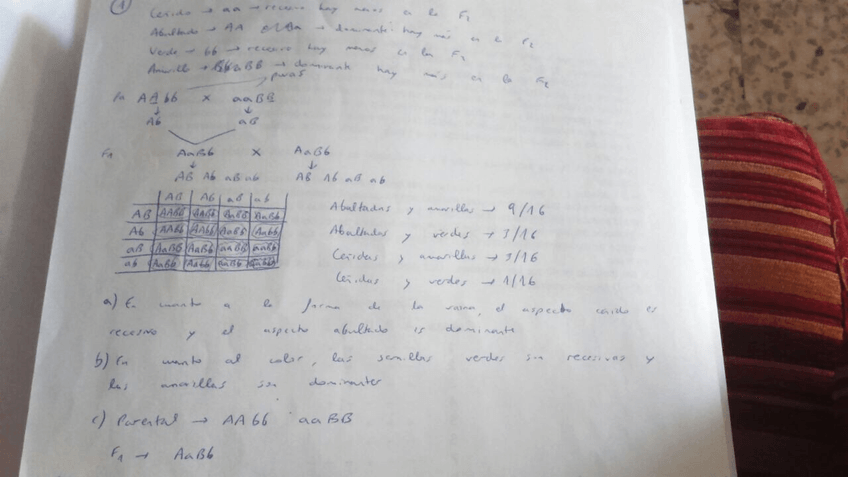 ①
Ceñido → aa → recesivo hay menos en la F2
Abultado → AA → dominante hay más en la F2
Verde → bb → recesivo hay menos en la F2
Amarillo → BB Bb → dominante hay más en la F2
puras
AAbb x aaBB
↓ ↓
Ab aB
F1 AaBb x AaBb
↓ ↓
AB Ab aB ab AB Ab aB ab
AB Ab aB ab
AB AABB AABb AaBB AaBb
Ab AABb AAbb AaBb Aabb
aB AaBB AaBb aaBB aaBb
ab AaBb Aabb aaBb aabb
Abultadas y amarillas → 9/16
Abultadas y verdes → 3/16
Ceñidas y amarillas → 3/16
Ceñidas y verdes → 1/16
a) En cuanto a la forma de la vaina, el aspecto ceñido es
recesivo y el aspecto abultado es dominante
b) En cuanto al color, las semillas verdes son recesivas y
las amarillas son dominantes
c) Parental → AAbb aaBB
F1 → AaBb